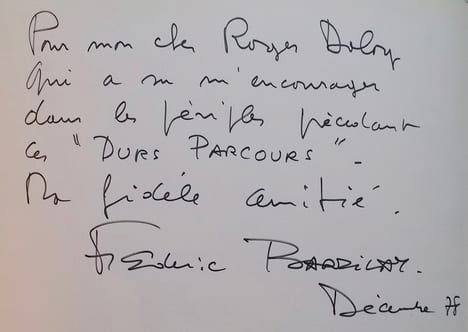 Pour mon cher Roger Doloy
qui a su m'encourager
dans les périples précédant
ces "DURS PARCOURS".
Ma fidèle amitié.
Frédéric
Décembre 78